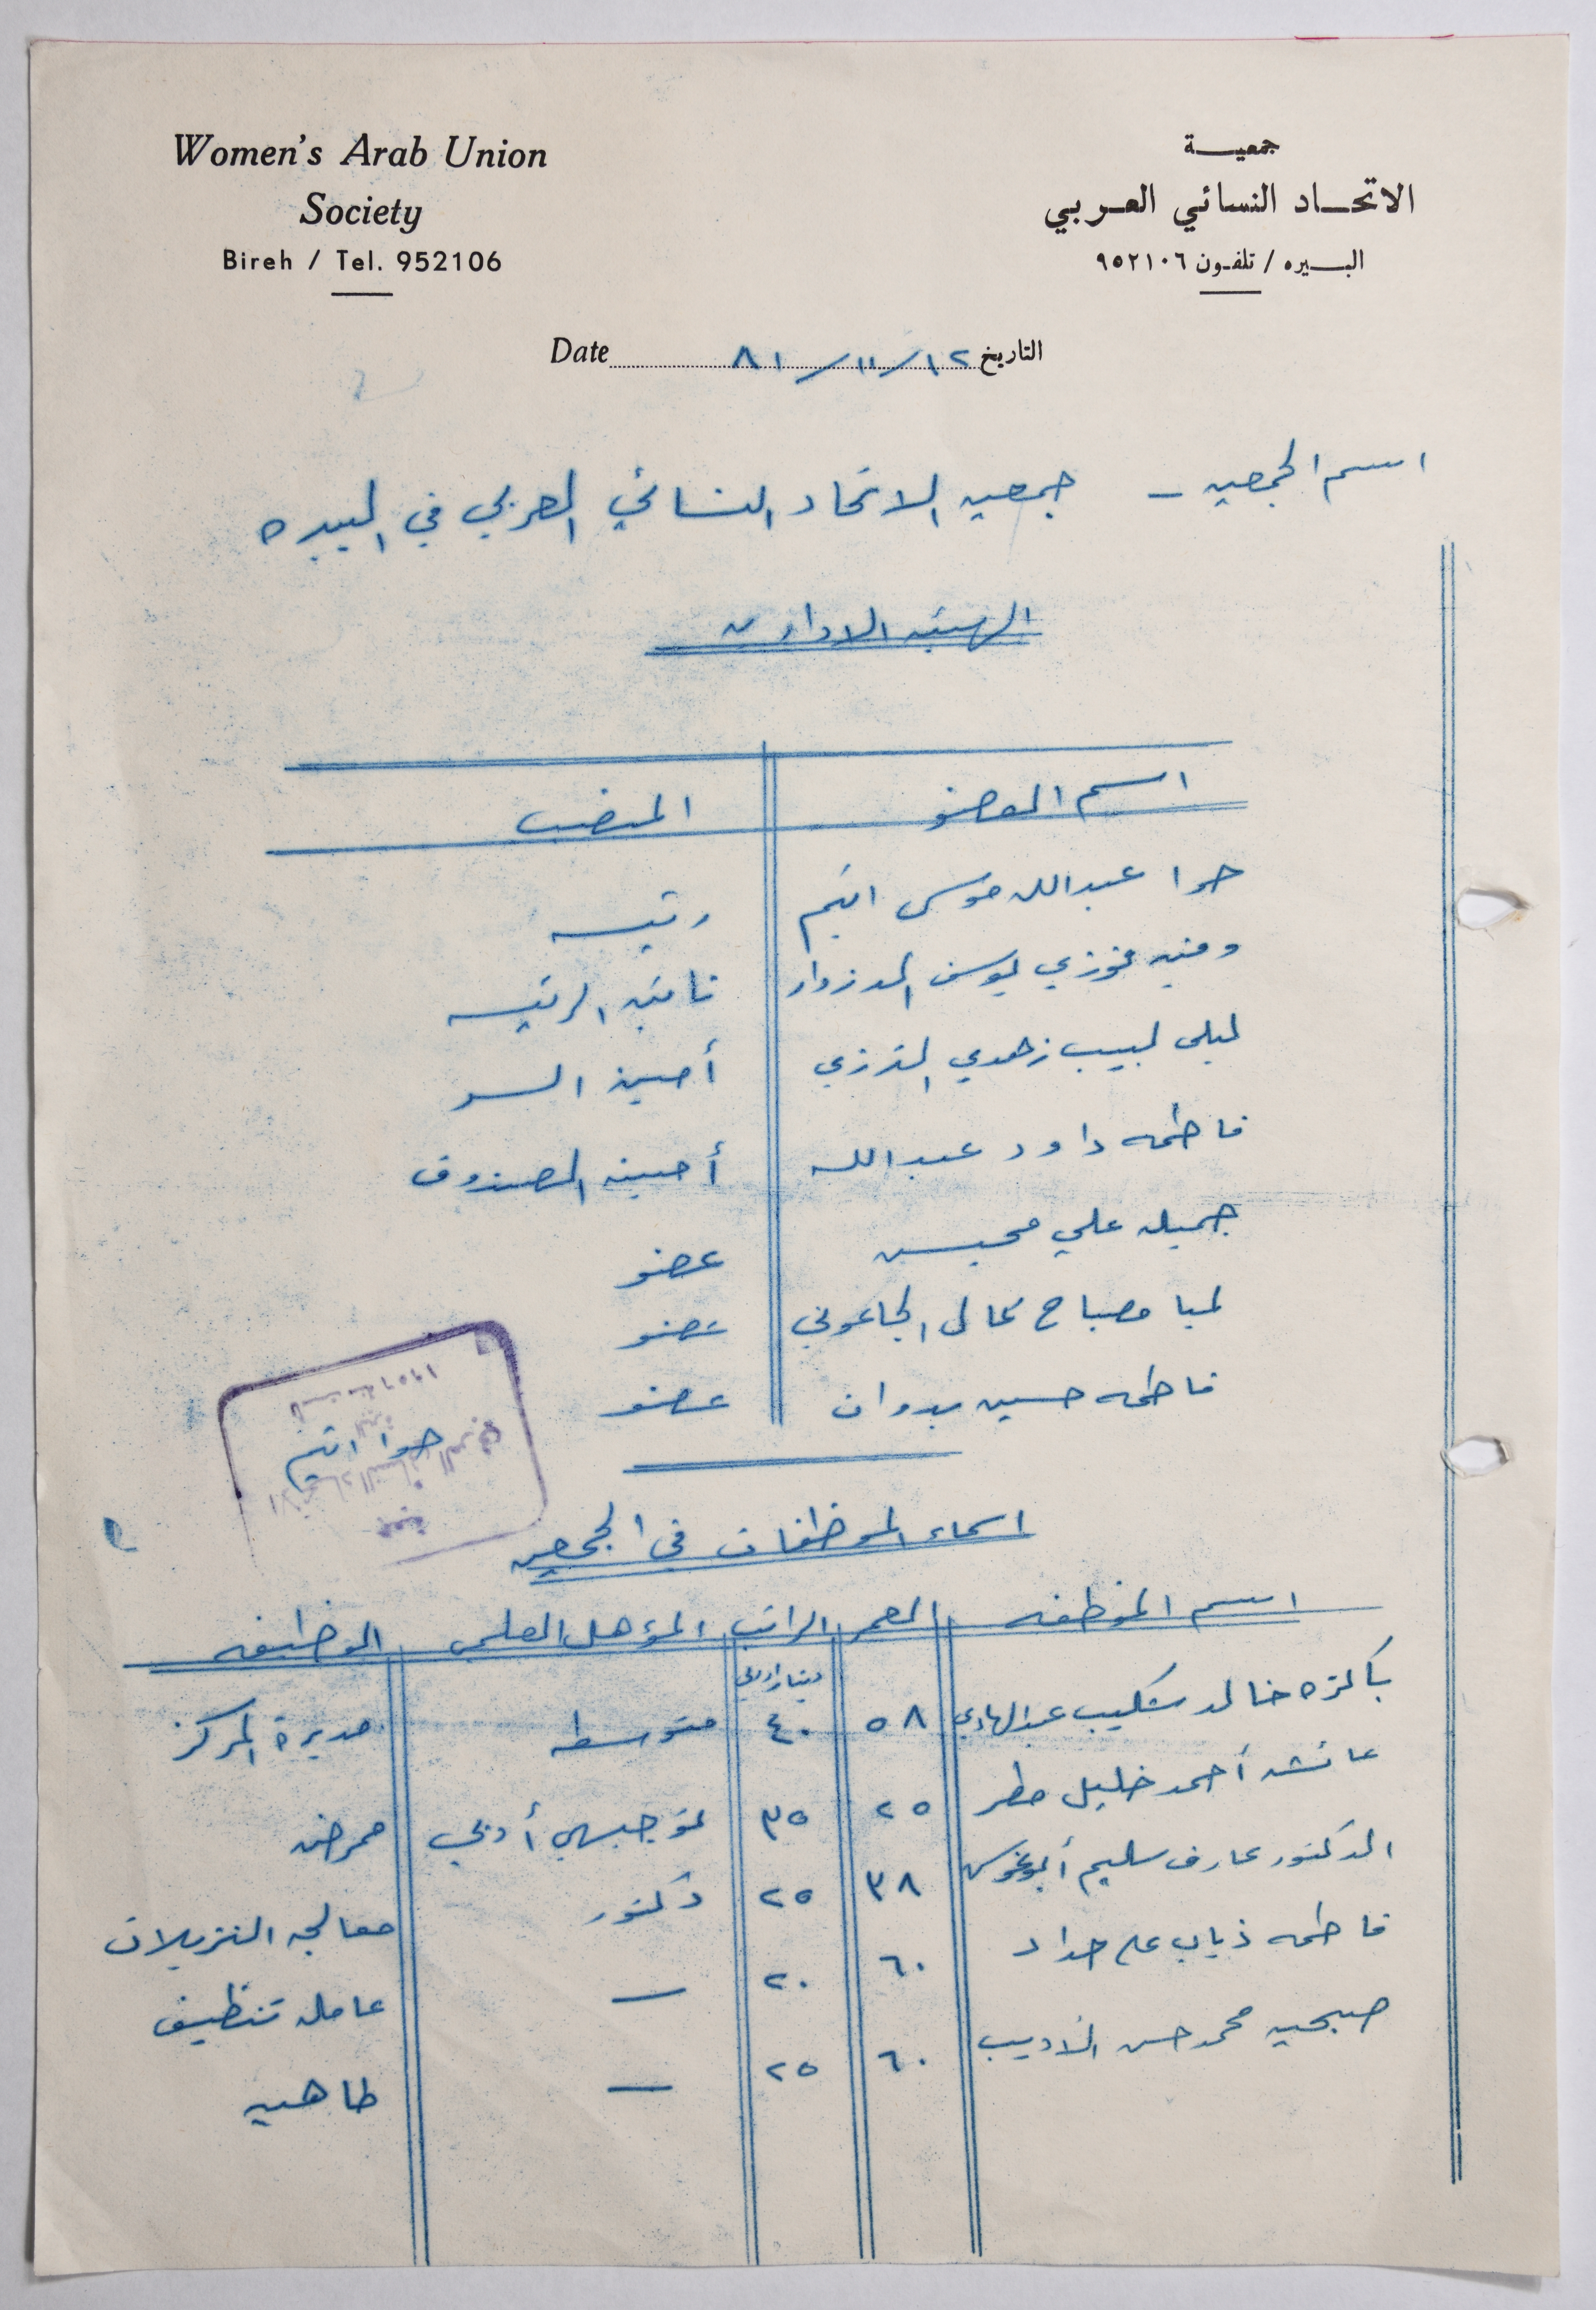 Women's Arab Union
Society
Bireh / Tel. 952106
جمعية
الاتحاد النسائي العربي
البيره / تلفون ٩٥٢١٠٦
Date التاريخ ١٢/١١/٨١
اسم الجمعيه - جمعيه الاتحاد النسائي العربي في البيره
الهيئه الاداريه
اسم العضو المنصب
حوا عبدالله موسى رئيسه
فوزي يوسف نائبه الرئيسه
ليلى لبيب زهدي الترزي أمينة السر
فاطمه داود عبدالله أمينه الصندوق
جميله علي محيسن عضو
لميا مصباح كمال الجاعوني عضو
فاطمه حسين بدوان عضو
جمعية
الاتحاد النسائي العربي
حوا
١٩٥٦
اسماء الموظفات في الجمعيه
اسم الموظفه العمر الراتب المؤهل العلمي الوظيفه
دينار اردني
خالد شكيب عبدالهادي ٥٨ ٤٠ متوسطه مديرة المركز
عائشه أحمد خليل مطر ٢٥ ٣٥ توجيهي أدبي ممرضه
الدكتور عارف سليم أبوغوش ٣٨ ٢٥ دكتور معالجه النزيلات
فاطمه ذياب علي حداد ٦٠ ٢٠ — عامله تنظيف
صبحيه محمد حسن الاديب ٦٠ ٢٥ — طاهيه